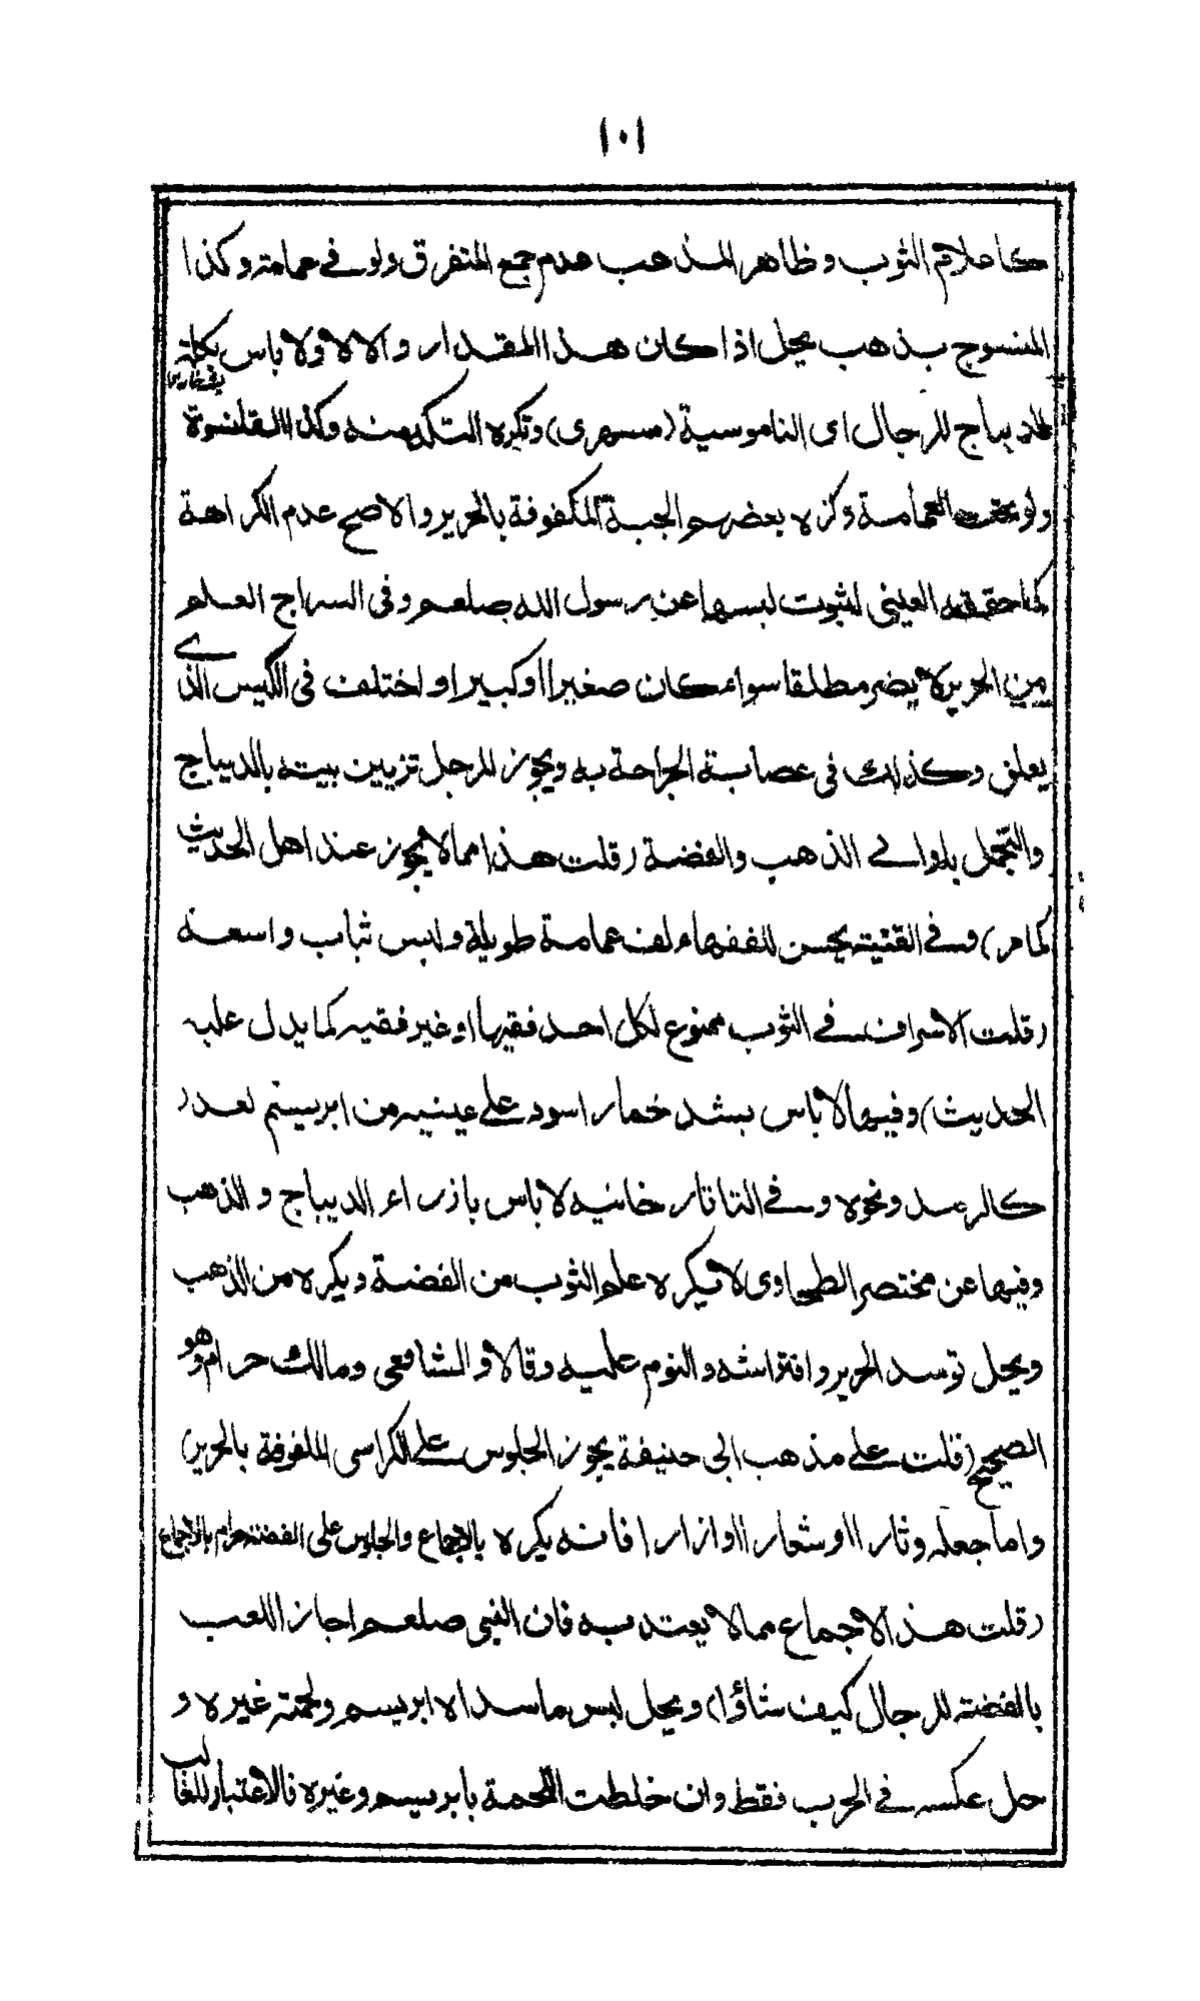 ١٠١
كاعلام الثوب وظاهر المذهب عدم جمع المتفرق ولو في عمامة وكذا
المنسوج بذهب يحل اذا كان هذا المقدار والا لا ولا باس بكلة
الديباج للرجال اى الناموسية (مسهرى) وتكره التكة منه وكذا القلنسوة
ولو تحت العمامة وكره بعضهم الجبة المكفوفة بالحرير والاصح عدم الكراهة
كما حققه العينى لثبوت لبسها عن رسول الله صلعم وفى السراج العلم
من الحرير لا يضر مطلقا سواء كان صغيرا او كبيرا واختلف فى الكيس الذى
يعلق وكذلك فى عصابة الجراحة به ويجوز للرجل تزيين بيته بالديباج
والتجمل باوانى الذهب والفضة (قلت هذا مما لا يجوز عند اهل الحديث
كمامر) وفي القنية يحسن للفقهاء لف عمامة طويلة ولبس ثياب واسعة
(قلت الاسراف في الثوب ممنوع لكل احد فقيها او غير فقيه كما يدل عليه
الحديث) وفيها لا باس بشد خمار اسود على عينيه من ابريسم لعذر
كالرمد ونحوه وفي التاتارخانيه لا باس بازراء الديباج والذهب
وفيها عن مختصر الطحاوى لا يكره علم الثوب من الفضة ويكره من الذهب
ويحل توسد الحرير وافتراشه والنوم عليه وقالا والشافعى ومالك حرام وهو
الصحيح (قلت على مذهب ابى حنيفة يجوز الجلوس على الكراسى الملفوفة بالحرير)
واما جعله دثارا او شعارا او ازارا فانه يكره بالاجماع والجلوس على الفضة حرام بالاجماع
(قلت هذا الاجماع مما لا يعتد به فان النبى صلعم اجاز اللعب
بالفضة للرجال كيف شاؤا) ويحل لبس ما سداه ابريسم ولحمته غيره و
حل عكسه في الحرب فقط وان خلطت اللحمة بابريسم وغيره فالاعتبار للغالب